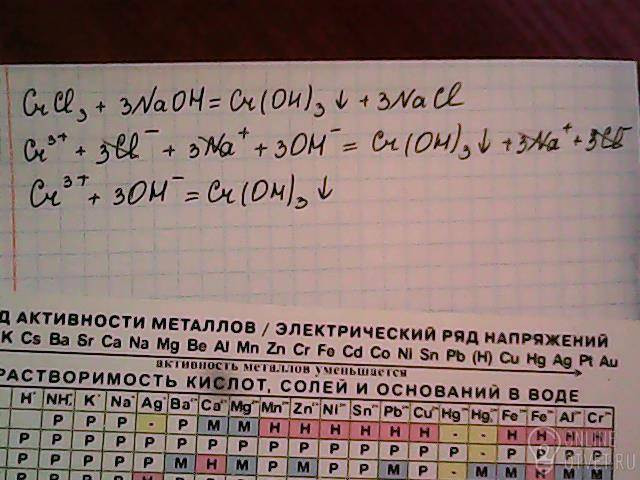 CrCl₃ + 3NaOH = Cr(OH)₃↓ + 3NaCl
Cr³⁺ + 3Cl⁻ + 3Na⁺ + 3OH⁻ = Cr(OH)₃↓ + 3Na⁺ + 3Cl⁻
Cr³⁺ + 3OH⁻ = Cr(OH)₃↓
Д АКТИВНОСТИ МЕТАЛЛОВ / ЭЛЕКТРИЧЕСКИЙ РЯД НАПРЯЖЕНИЙ
K Cs Ba Sr Ca Na Mg Be Al Mn Zn Cr Fe Cd Co Ni Sn Pb (H) Cu Hg Ag Pt Au
активность металлов уменьшается
РАСТВОРИМОСТЬ КИСЛОТ, СОЛЕЙ И ОСНОВАНИЙ В ВОДЕ
H⁺ NH₄⁺ K⁺ Na⁺ Ag⁺ Ba²⁺ Ca²⁺ Mg²⁺ Mn²⁺ Zn²⁺ Ni²⁺ Sn²⁺ Pb²⁺ Cu²⁺ Hg Hg₂ Fe Fe Al Cr
Р Р Р - Р М М Н Н Н Н Н Н - - Н Н Н Н
ONLINE
OTVET.RU